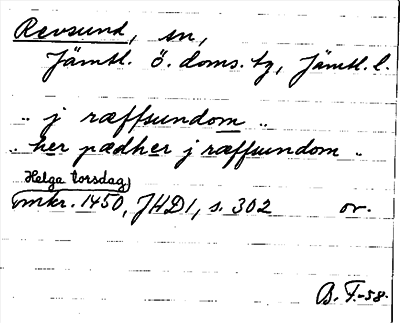 Revsund, sn,
Jämtl. ö. doms. tg, Jämtl. l.
.. j ræffsundom ..
.. her pædher j ræffsundom ..
Helga torsdag
mkr. 1450, JHD1, s. 302 or.
B. F.-58.